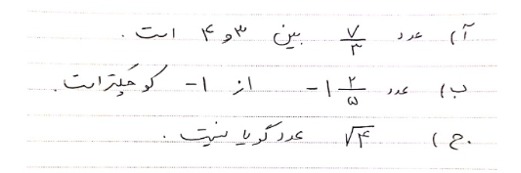 آ) عدد ۷/۳ بین ۳ و ۴ است.
ب) عدد -۱ ۲/۵ از -۱ کوچکتر است.
ج) √۴ عدد گویا نیست.